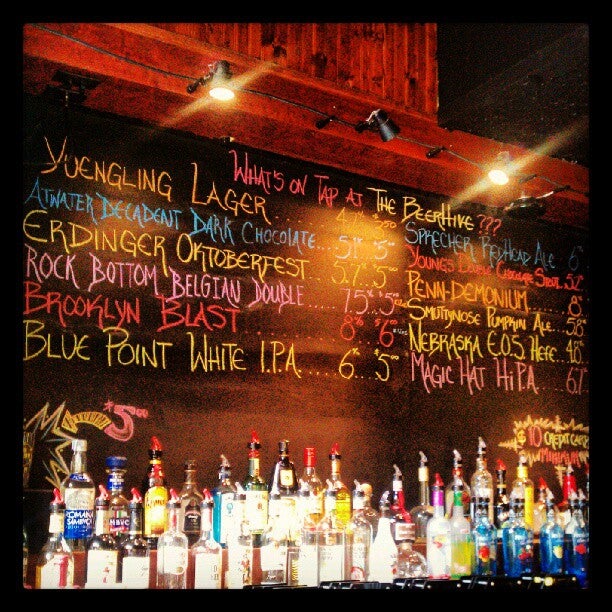 WHAT'S ON TAP AT THE BEERHIVE???
YUENGLING LAGER
ATWATER DECADENT DARK CHOCOLATE... 5%.. 5⁰⁰
ERDINGER OKTOBERFEST..... 5.7%.. 5⁰⁰
ROCK BOTTOM BELGIAN DOUBLE..... 7.5%.. $5⁰⁰
BROOKLYN BLAST ........ 8% $6
BLUE POINT WHITE I.P.A. ..... 6%.. $5⁰⁰
SPRECHER REDHEAD ALE 6
YOUNG'S DOUBLE CHOCOLATE STOUT 5.2
PENN-DEMONIUM...... 8
SMUTTYNOSE PUMPKIN ALE... 5.8
NEBRASKA E.O.S. HEFE.. 4.8
MAGIC HAT HIPA.... 6.7
$5⁰⁰
$10 CREDIT CARD
MINIMUM
ROMANA
SAMBUCA